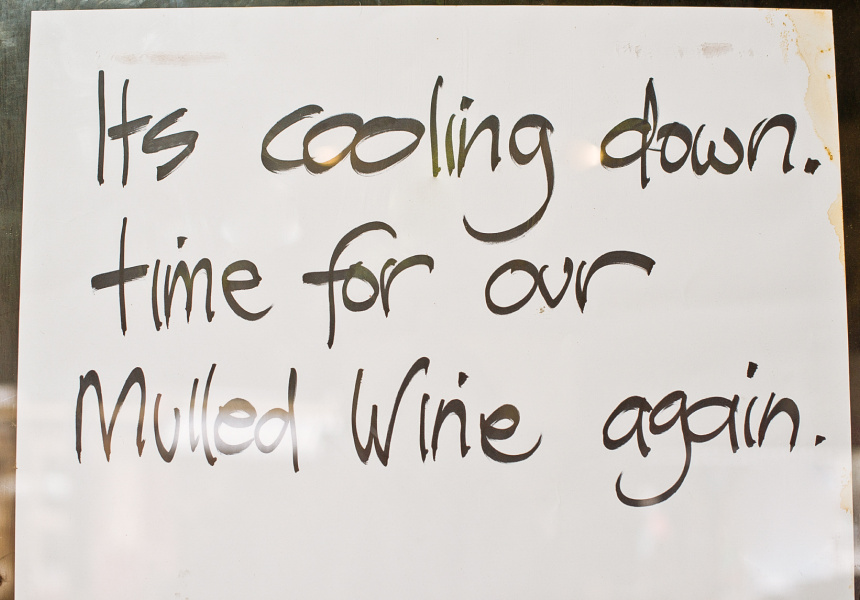 Its cooling down.
time for our
Mulled Wine again.